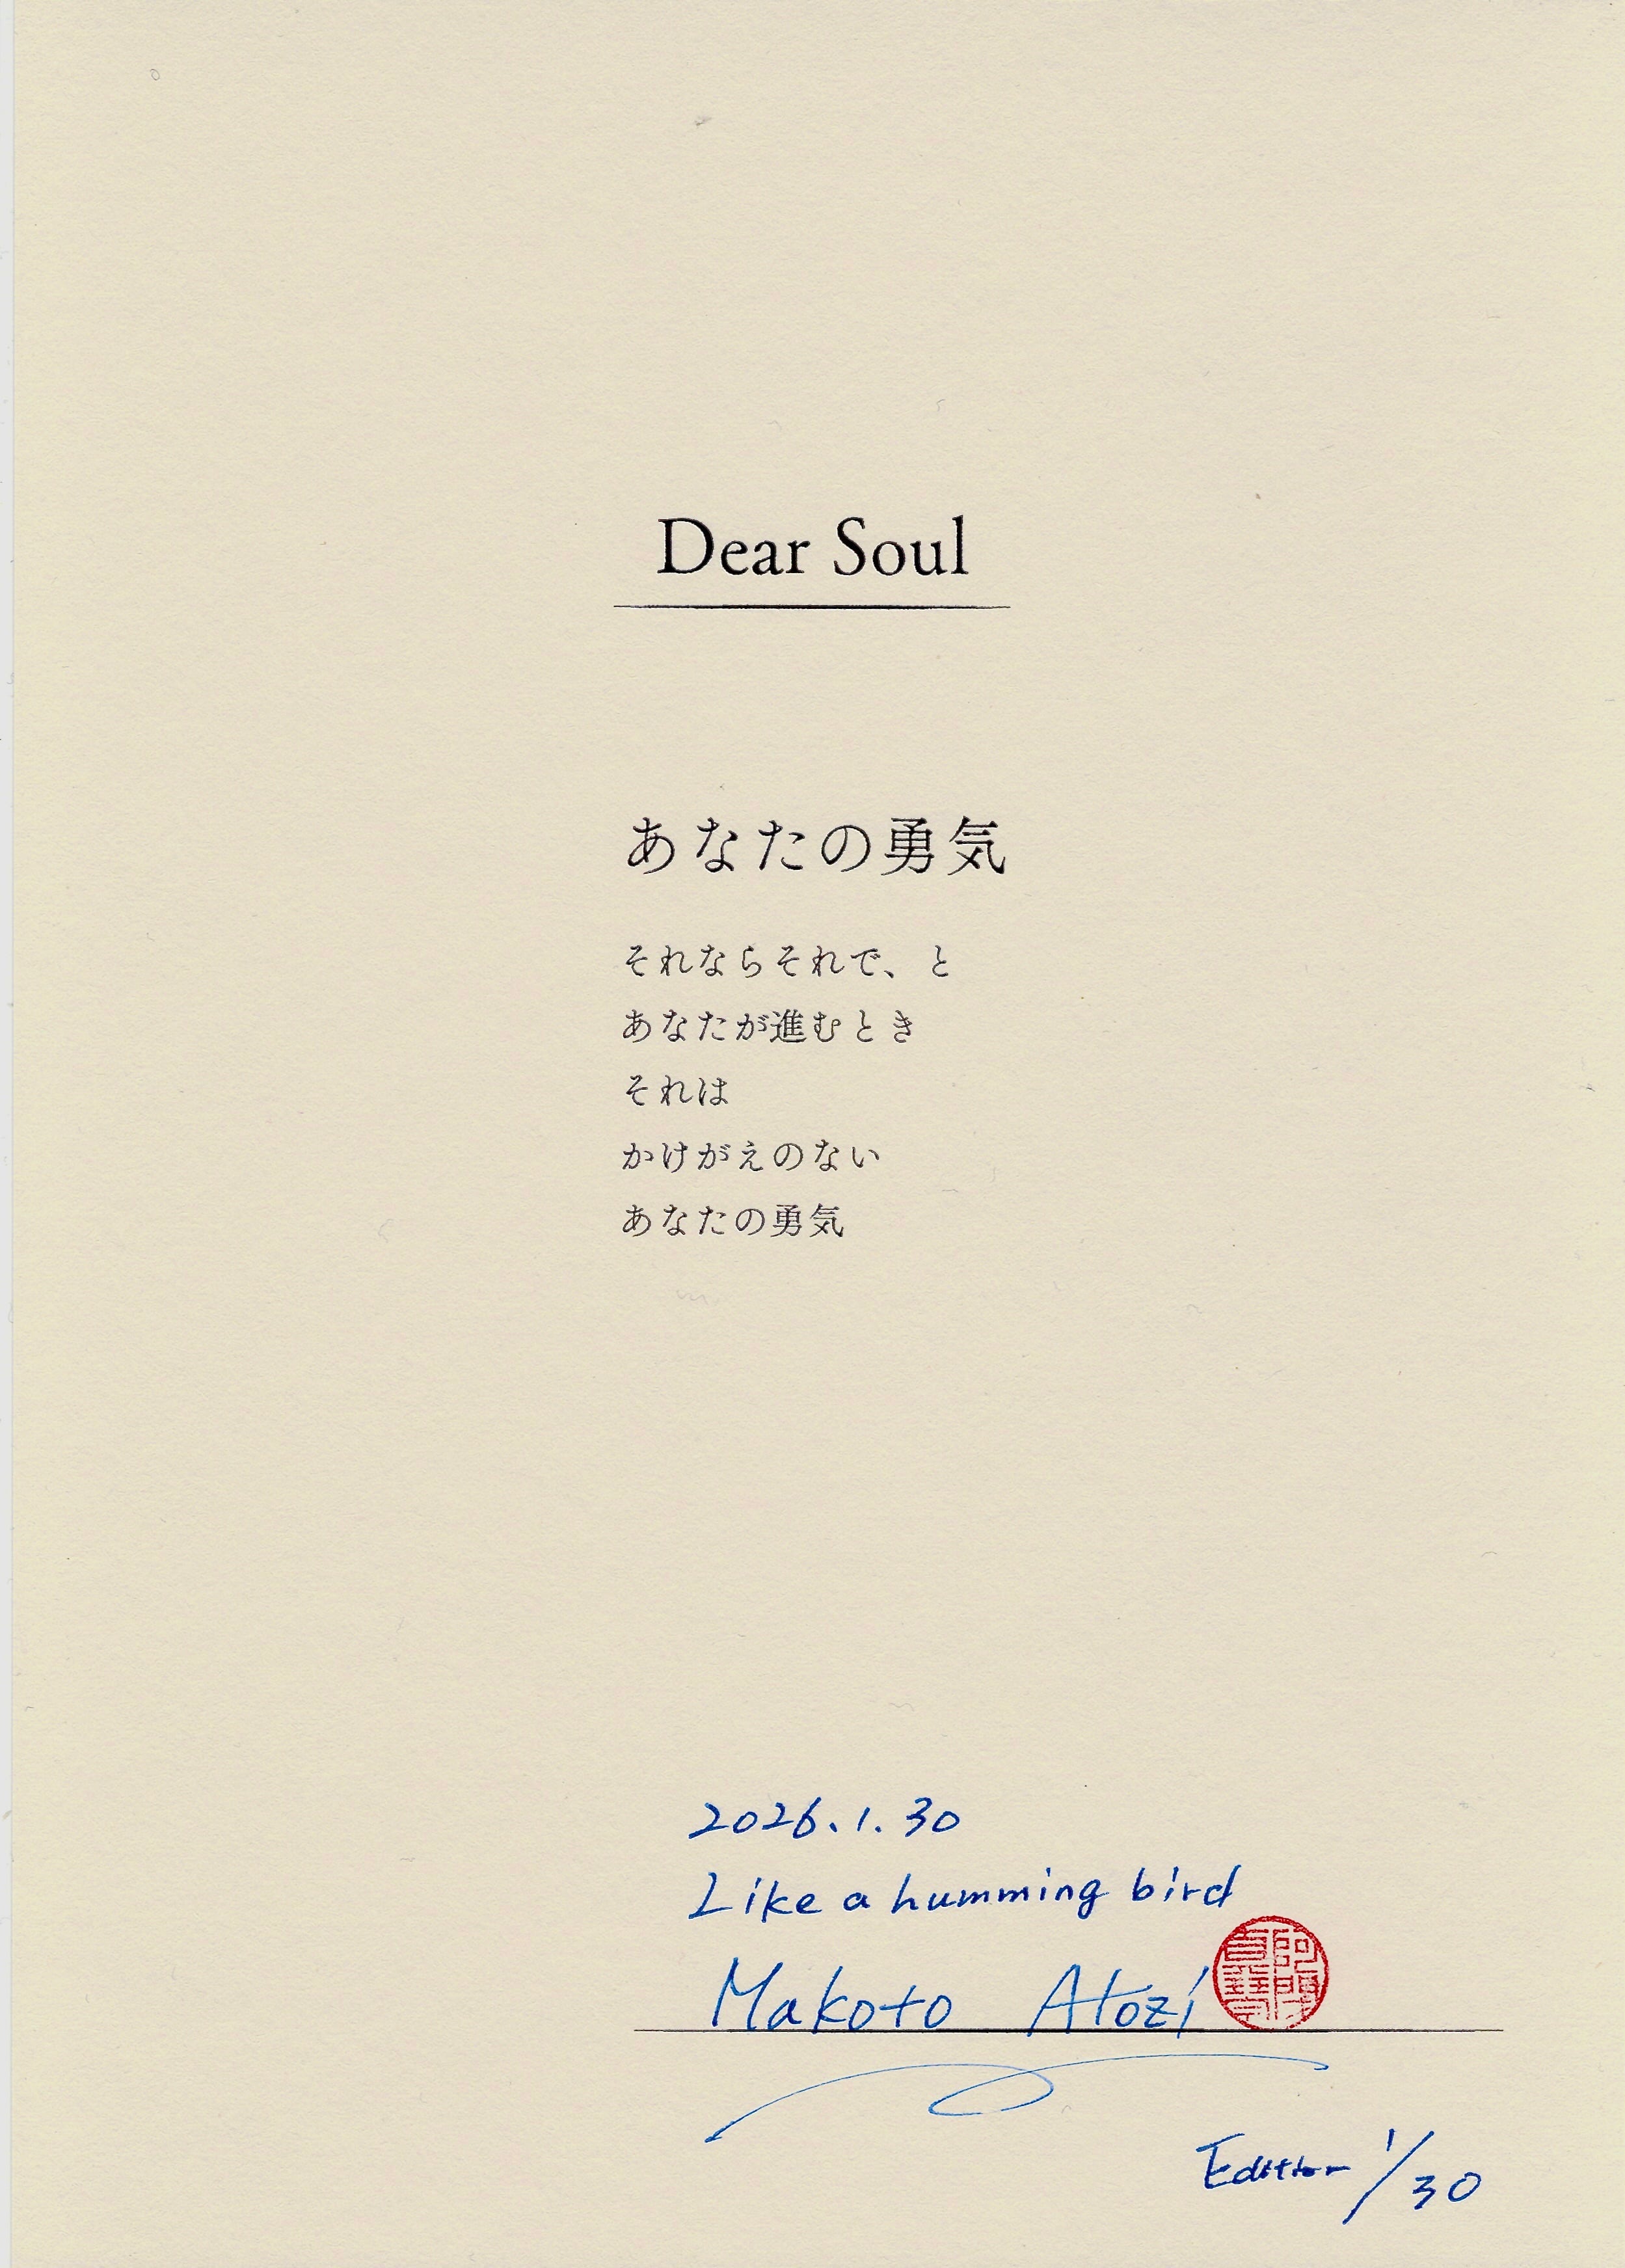 Dear Soul
あなたの勇気
それならそれで、と
あなたが進むとき
それは
かけがえのない
あなたの勇気
2026.1.30
Like a humming bird
Makoto Atozi
Edition 1/30